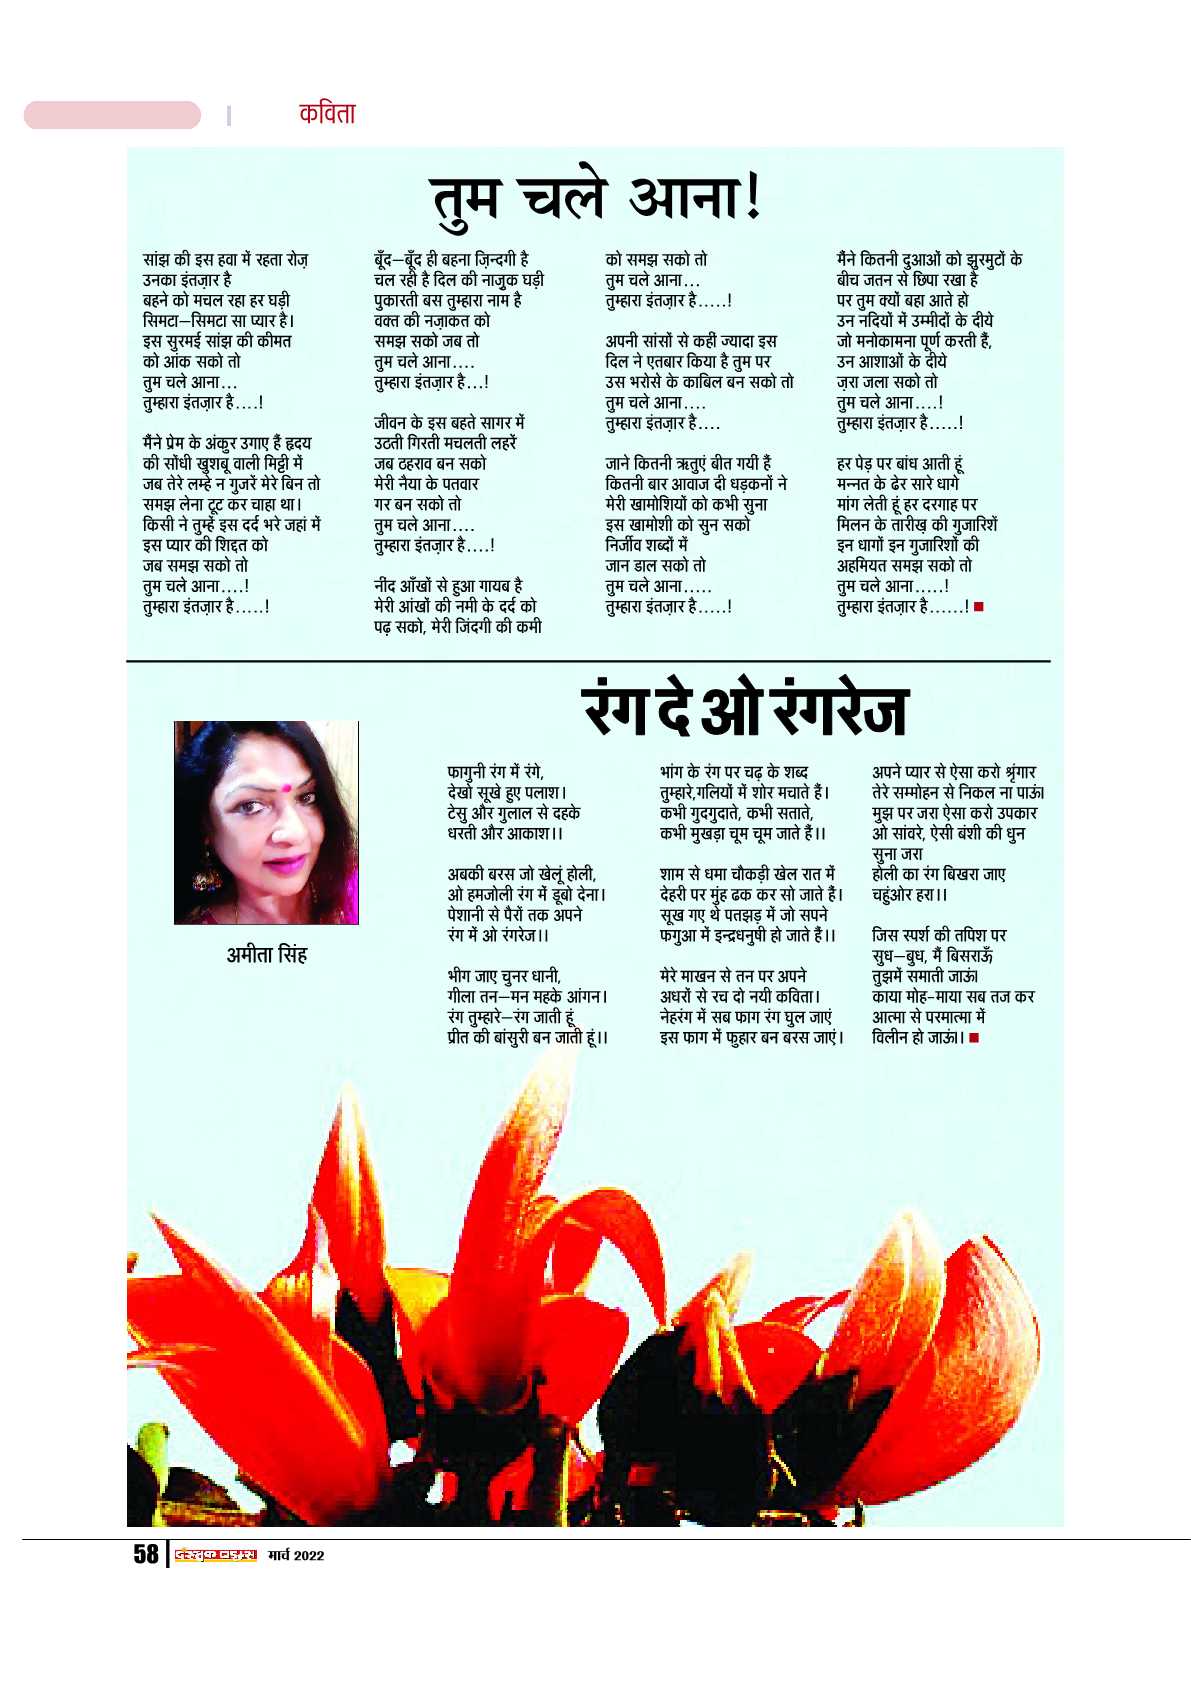 कविता
तुम चले आना!
सांझ की इस हवा में रहता रोज़
उनका इंतज़ार है
बहने को मचल रहा हर घड़ी
सिमटा–सिमटा सा प्यार है।
इस सुरमई सांझ की कीमत
को आंक सको तो
तुम चले आना...
तुम्हारा इंतज़ार है....!
मैंने प्रेम के अंकुर उगाए हैं हृदय
की सोंधी खुशबू वाली मिट्टी में
जब तेरे लम्हे न गुजरें मेरे बिन तो
समझ लेना टूट कर चाहा था।
किसी ने तुम्हें इस दर्द भरे जहां में
इस प्यार की शिद्दत को
जब समझ सको तो
तुम चले आना....!
तुम्हारा इंतज़ार है.....!
बूँद–बूँद ही बहना ज़िन्दगी है
चल रही है दिल की नाजुक घड़ी
पुकारती बस तुम्हारा नाम है
वक्त की नज़ाकत को
समझ सको जब तो
तुम चले आना....
तुम्हारा इंतज़ार है...!
जीवन के इस बहते सागर में
उठती गिरती मचलती लहरें
जब ठहराव बन सको
मेरी नैया के पतवार
गर बन सको तो
तुम चले आना....
तुम्हारा इंतज़ार है....!
नींद आँखों से हुआ गायब है
मेरी आंखों की नमी के दर्द को
पढ़ सको, मेरी जिंदगी की कमी
को समझ सको तो
तुम चले आना...
तुम्हारा इंतज़ार है.....!
अपनी सांसों से कहीं ज्यादा इस
दिल ने एतबार किया है तुम पर
उस भरोसे के काबिल बन सको तो
तुम चले आना....
तुम्हारा इंतज़ार है....
जाने कितनी ऋतुएं बीत गयी हैं
कितनी बार आवाज दी धड़कनों ने
मेरी खामोशियों को कभी सुना
इस खामोशी को सुन सको
निर्जीव शब्दों में
जान डाल सको तो
तुम चले आना.....
तुम्हारा इंतज़ार है.....!
मैंने कितनी दुआओं को झुरमुटों के
बीच जतन से छिपा रखा है
पर तुम क्यों बहा आते हो
उन नदियों में उम्मीदों के दीये
जो मनोकामना पूर्ण करती हैं,
उन आशाओं के दीये
ज़रा जला सको तो
तुम चले आना....!
तुम्हारा इंतज़ार है.....!
हर पेड़ पर बांध आती हूं
मन्नत के ढेर सारे धागे
मांग लेती हूं हर दरगाह पर
मिलन के तारीख़ की गुजारिशें
इन धागों इन गुजारिशों की
अहमियत समझ सको तो
तुम चले आना.....!
तुम्हारा इंतज़ार है......!
रंग दे ओ रंगरेज
अमीता सिंह
फागुनी रंग में रंगे,
देखो सूखे हुए पलाश।
टेसु और गुलाल से दहके
धरती और आकाश।।
अबकी बरस जो खेलूं होली,
ओ हमजोली रंग में डूबो देना।
पेशानी से पैरों तक अपने
रंग में ओ रंगरेज।।
भीग जाए चुनर धानी,
गीला तन–मन महके आंगन।
रंग तुम्हारे–रंग जाती हूं
प्रीत की बांसुरी बन जाती हूं।।
भांग के रंग पर चढ़ के शब्द
तुम्हारे,गलियों में शोर मचाते हैं।
कभी गुदगुदाते, कभी सताते,
कभी मुखड़ा चूम चूम जाते हैं।।
शाम से धमा चौकड़ी खेल रात में
देहरी पर मुंह ढक कर सो जाते हैं।
सूख गए थे पतझड़ में जो सपने
फगुआ में इन्द्रधनुषी हो जाते हैं।।
मेरे माखन से तन पर अपने
अधरों से रच दो नयी कविता।
नेहरंग में सब फाग रंग घुल जाएं
इस फाग में फुहार बन बरस जाएं।
अपने प्यार से ऐसा करो श्रृंगार
तेरे सम्मोहन से निकल ना पाऊं।
मुझ पर जरा ऐसा करो उपकार
ओ सांवरे, ऐसी बंशी की धुन
सुना जरा
होली का रंग बिखरा जाए
चहुंओर हरा।।
जिस स्पर्श की तपिश पर
सुध–बुध, मैं बिसराऊँ
तुझमें समाती जाऊं।
काया मोह-माया सब तज कर
आत्मा से परमात्मा में
विलीन हो जाऊं।।
58
मार्च 2022